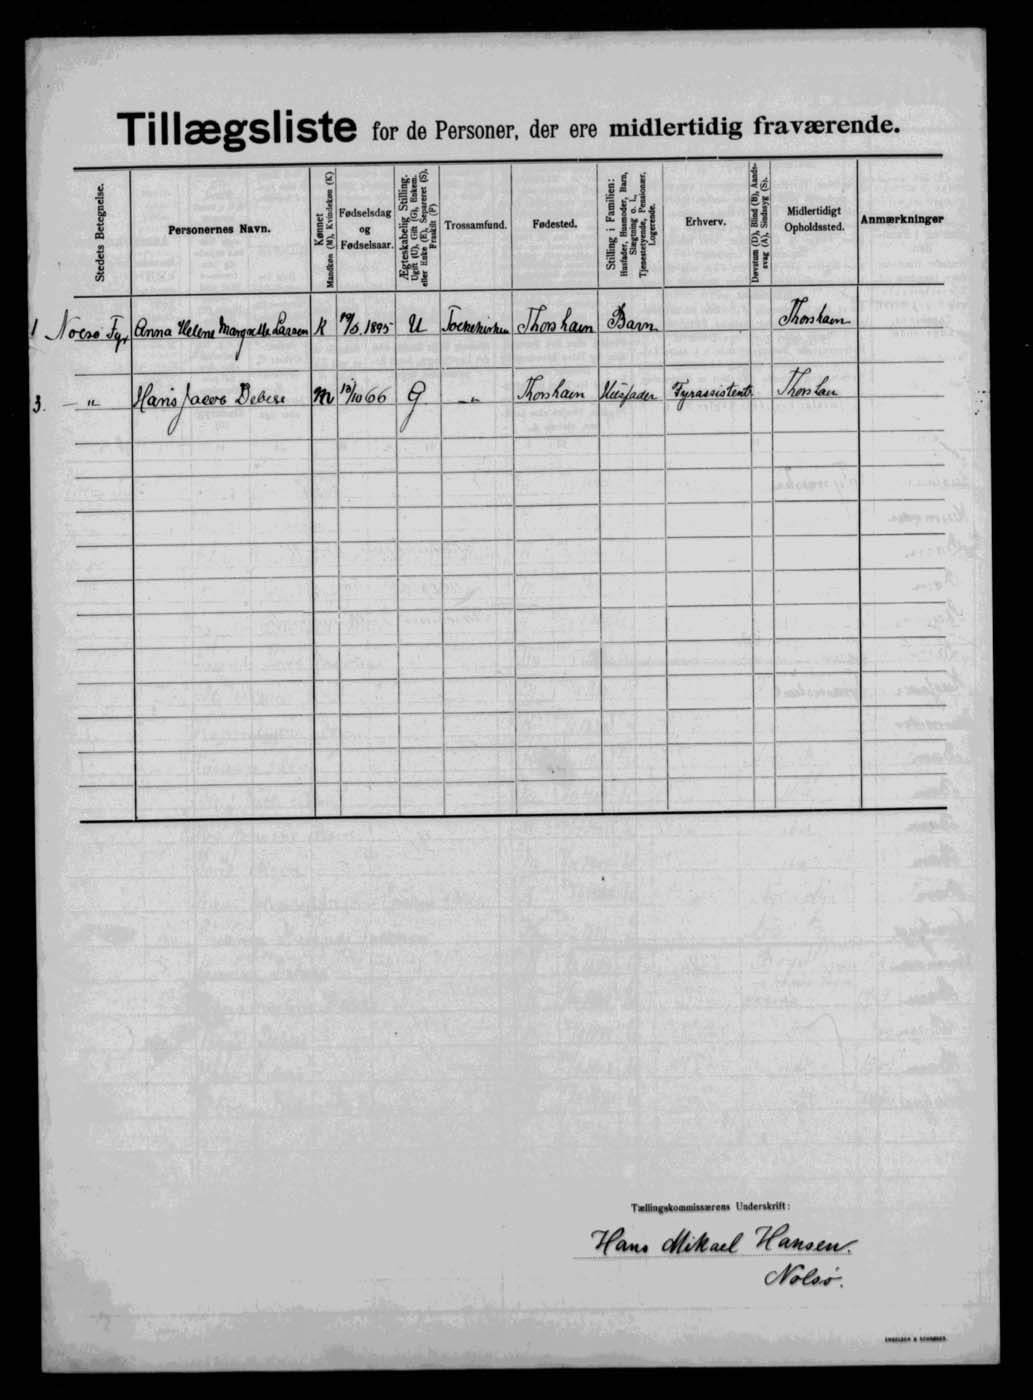 Tillægsliste for de Personer, der ere midlertidig fraværende.
Stedets Betegnelse.
Personernes Navn.
Kønnet
Mandkøn (M), Kvindekøn (K)
Fødselsdag
og
Fødselsaar.
Ægteskabelig Stilling.
Ugift (U), Gift (G), Enkem.
eller Enke (E), Separeret (S),
Fraskilt (F)
Trossamfund.
Fødested.
Stilling i Familien:
Husfader, Husmoder, Barn,
Slægtning o. l.,
Tjenestetyende, Pensionær,
Logerende.
Erhverv.
Døvstum (D), Blind (B), Aands-
svag (A), Sindssyg (S).
Midlertidigt
Opholdssted.
Anmærkninger
1 Nolsø Fyr Anna Helene Margrethe Larsen K 1895 U Folkekirken Thorshavn Barn Thorshavn
3. — " Hans Jacob Debess M 12/10 66 G — " Thorshavn Husfader Fyrassistent Thorshavn
Tællingskommissærens Underskrift:
Hans Mikael Hansen.
Nolsø.